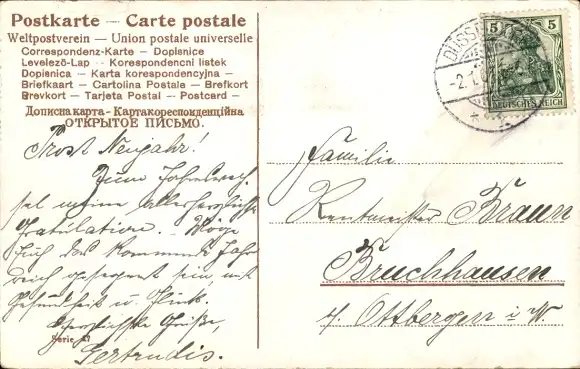 Postkarte – Carte postale
Weltpostverein – Union postale universelle
Correspondenz-Karte – Dopisnice
Levelező-Lap – Korespondencni listek
Dopisnica – Karta korespondencyjna –
Briefkaart – Cartolina Postale – Brefkort
Brevkort – Tarjeta Postal – Postcard –
Дописна карта - Картакореспонденційна
ОТКРЫТОЕ ПИСЬМО.
Prost Neujahr!
Zum Jahreswech-
sel meine allerherzlichste
Gratulation. Möge
Euch das kommende Jahr
reich gesegnet sein mit
Gesundheit u. Glück.
Herzlichste Grüße,
Gertrudis.
Serie 41
5 5
DEUTSCHES REICH
DÜSSELDORF
-2.1.
Familie
Rentmeister Braun
Bruchhausen
b/ Ottbergen i. W.